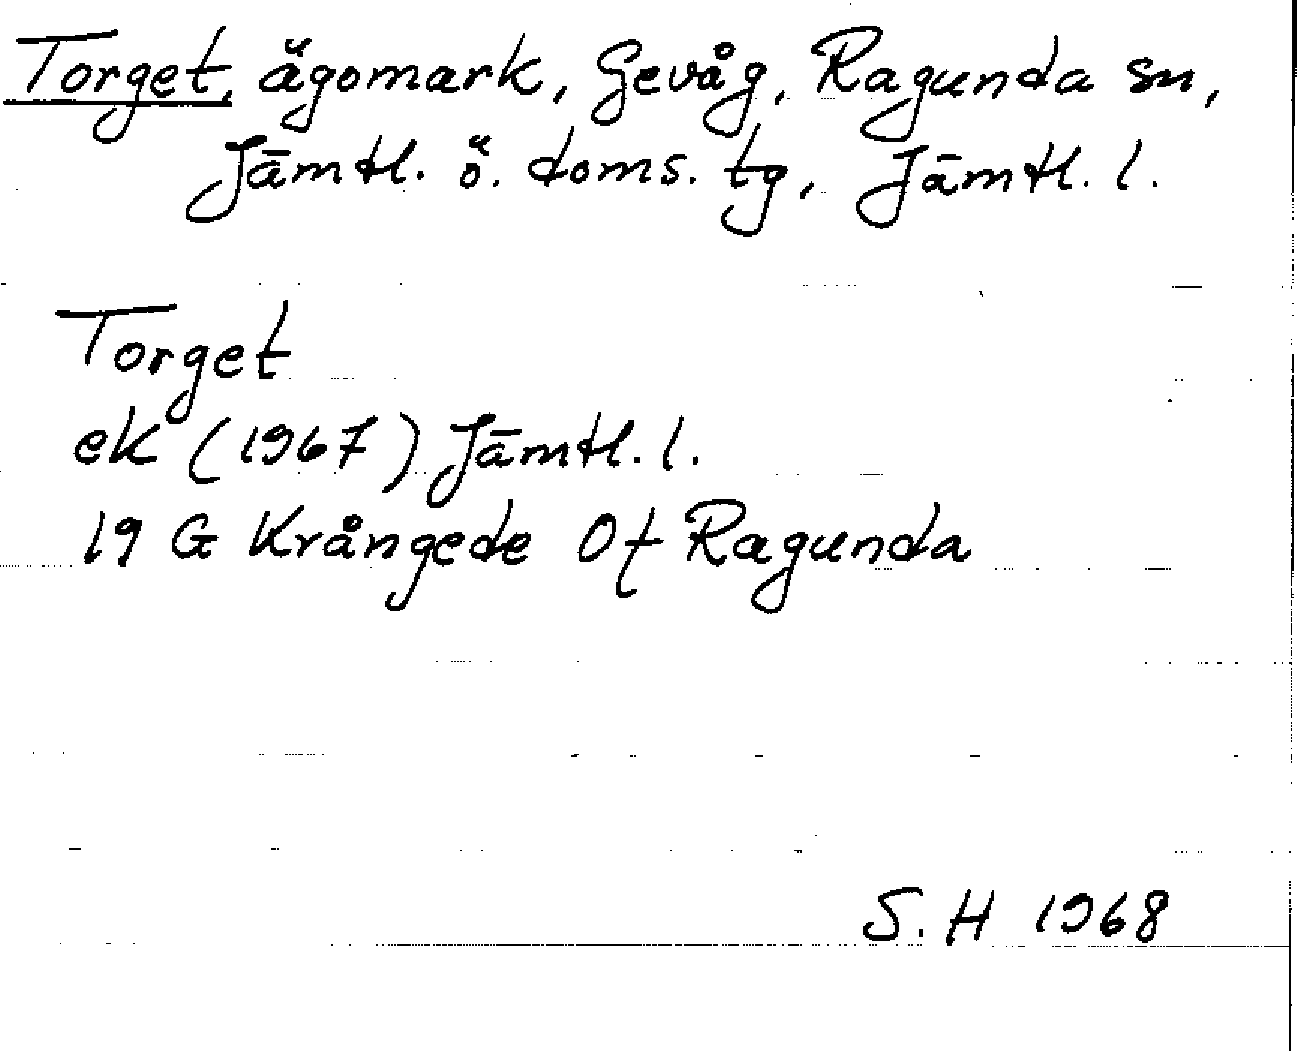 Torget, ägomark, Gevåg, Ragunda sn,
Jämtl. ö. doms. tg, Jämtl. l.
Torget
ek (1967) Jämtl. l.
19 G Krångede Of Ragunda
S. H 1968